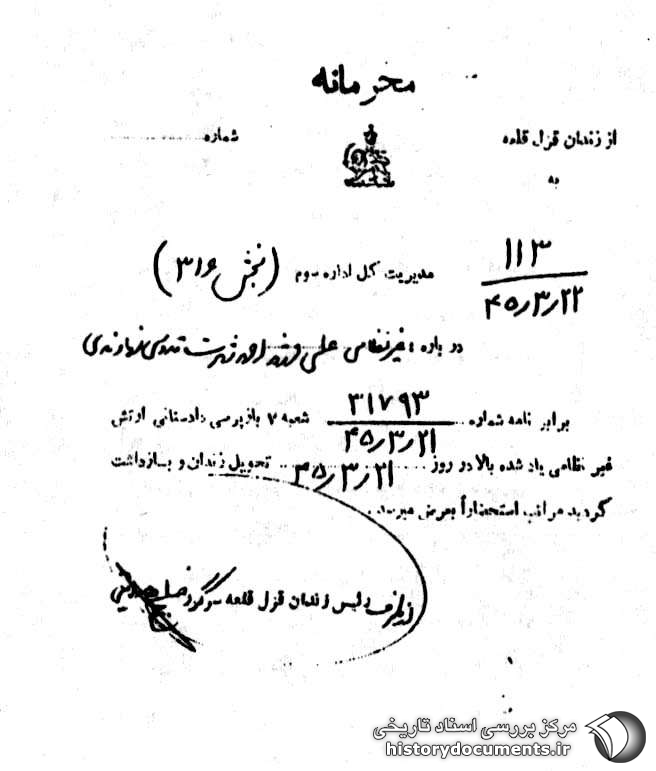 محرمانه
از زندان قزل قلعه
شماره
به
۱۱۳
۴۵/۳/۲۲
مدیریت کل اداره سوم (بخش ۳۱۶)
در باره : غیرنظامی علی فرزند احمد شهرت قدوسی نهاوندی
برابر نامه شماره ۳۱۷۹۳ شعبه ۷ بازپرسی دادستانی ارتش
۴۵/۳/۲۱
غیر نظامی یاد شده بالا در روز ۴۵/۳/۲۱ تحویل زندان و بازداشت
گردید مراتب استحضاراً بعرض میرسد .
از طرف رئیس زندان قزل قلعه سرگرد
مرکز بررسی اسناد تاریخی
historydocuments.ir